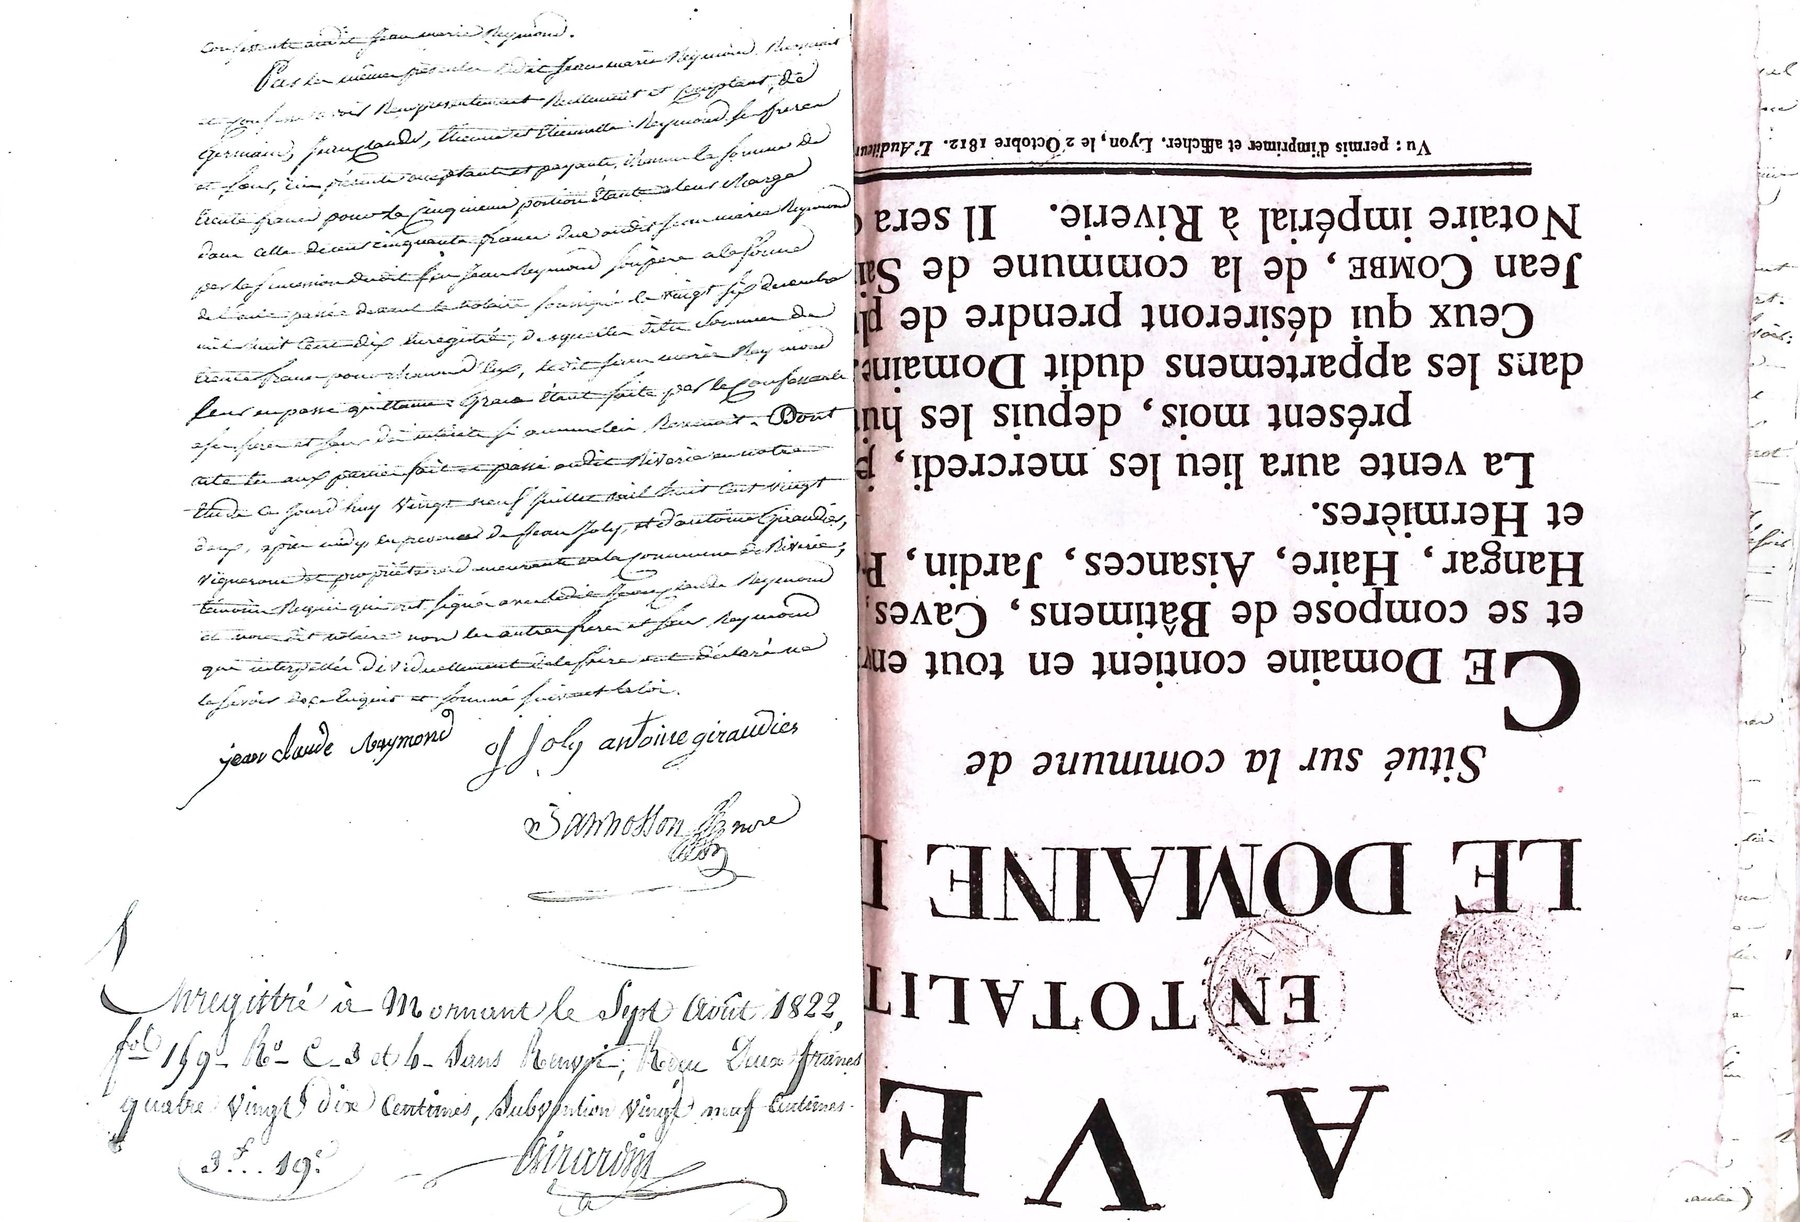 consistente audit Jean marie Reymond.
Par les mêmes présentes ledit Jean marie Reymond, Reconnait
et confesse avoir Reçu présentement Reellement et comptant, de
Germain, Jean Claude, Etienne et Etiennette Reymond, ses freres
et sœur, ici présents acceptants et payants, chacun la somme de
trente francs pour le cinquieme portion étante a leur charge
dans celle de cent cinquante francs due audit Jean marie Reymond
par la succession dudit feu Jean Reymond son père a la forme
de l'acte passé devant le notaire soussigné le vingt six decembre
mil huit cent dix Enregistré, desquelles dites sommes de
trente francs pour chacun d'eux, ledit Jean marie Reymond
leur en passe quittance. Grace étant faite par le confessant
a ses freres et sœur des intérêts si aucun lui Revenoit. Dont
acte lu aux parties fait et passé audit Riverie en notre
Etude ce jourd'huy vingt neuf Juillet mil huit cent vingt
deux, après midy en presence de Jean Joly, et d'antoine Giraudier,
vignerons et propriétaires demeurants en la commune de Riverie,
témoins Requis qui ont signé avec ledit Jean Claude Reymond
et nous dit notaire non les autres freres et sœur Reymond
qui interpellés individuellement de le faire ont déclaré ne
le savoir de ce Enquis et sommé suivant la loi.
jean claude Reymond J Joly antoine giraudier
Enregistré à Mornant le Sept Août 1822,
fol 159 Ro C 3 et 4 Sans Renvoi; Reçu Deux francs
quatre vingt dix Centimes, Subvention vingt neuf Centimes
3f.. 19c
Girardin
A VE
EN TOTALIT
LE DOMAINE
Situé sur la commune de
CE Domaine contient en tout env
et se compose de Bâtimens, Caves,
Hangar, Haire, Aisances, Jardin, P
et Hermières.
La vente aura lieu les mercredi, j
présent mois, depuis les hu
dans les appartemens dudit Domaine.
Ceux qui désireront prendre de pl
Jean COMBE, de la commune de Sai
Notaire impérial à Riverie. Il sera
Vu : permis d'imprimer et afficher. Lyon, le 2 Octobre 1812. L'Auditeur